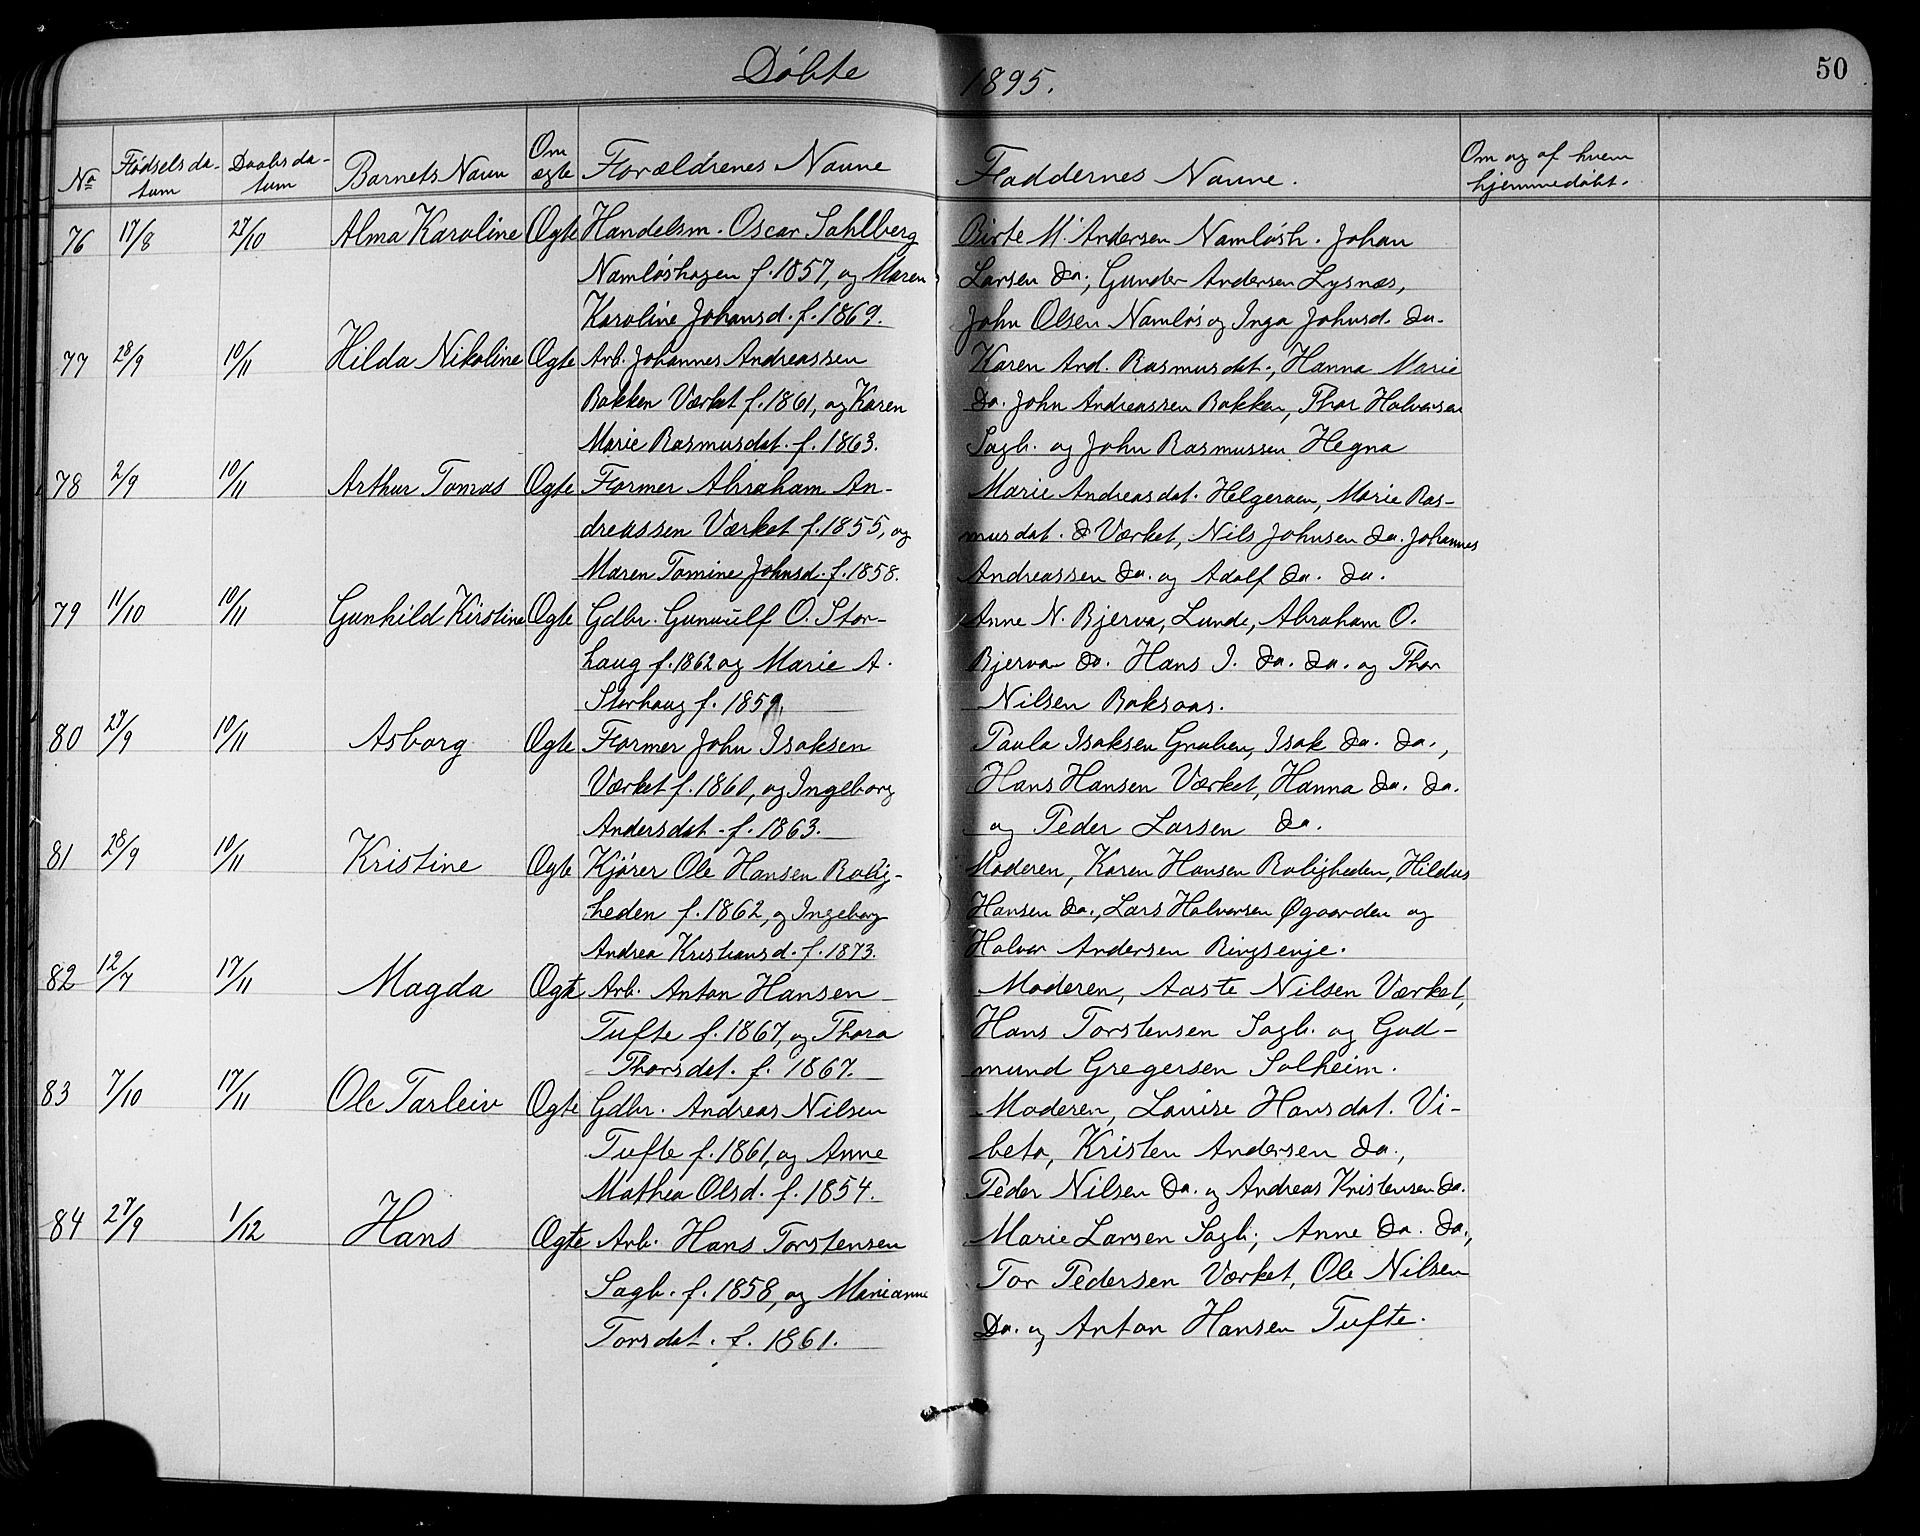 Döbte 1895. 50
No Födselsda- Daabsda- Barnets Navn Om Forældrenes Navne Faddernes Navne. Om og af hvem
tum tum ægte hjemmedöbt.
76 17/8 27/10 Alma Karoline Ægte Handelsm. Oscar Sahlberg Birte M. Andersen Namlösh. Johan
Namlöshagen f. 1857, og Maren Larsen Do., Gunder Andersen Lysnæs,
Karoline Johansd. f. 1869. John Olsen Namlös og Inga Johnsd. Do.
77 28/9 10/11 Hilda Nikoline Ægte Arb. Johannes Andreassen Karen And. Rasmusdat., Hanna Marie
Bakken Værket f. 1861, og Karen Do. John Andreassen Bakken, Thor Halvorsen
Marie Rasmusdat. f. 1863. Sagb. og John Rasmussen Hegna
78 2/9 10/11 Arthur Tomas Ægte Former Abraham An- Marie Andreasdat. Helgeroen, Marie Ras-
dreassen Værket f. 1855, og musdat. Værket, Nils Johnsen Do. Johannes
Maren Tomine Johnsd. f. 1858. Andreassen Do. og Adolf Do. Do.
79 11/10 10/11 Gunhild Kirstine Ægte Gdbr. Gunnulf O. Stor- Anne N. Bjerva, Lunde, Abraham O.
haug f. 1862 og Marie A. Bjerva Do. Hans I. Do. Do. og Thor
Storhaug f. 1859. Nilsen Baksaas.
80 27/9 10/11 Asborg Ægte Former John Isaksen Paula Isaksen Gruben, Isak Do. Do.,
Værket f. 1860, og Ingeborg Hans Hansen Værket, Hanna Do. Do.
Andersdat. f. 1863. og Peder Larsen Do.
81 28/9 10/11 Kristine Ægte Kjörer Ole Hansen Rolig- Moderen, Karen Hansen Roligheden, Hildus
heden f. 1862, og Ingeborg Hansen Do., Lars Halvorsen Øgaarden og
Andrea Kristiansd. f. 1873. Halvor Andersen Ringsevje.
82 12/7 17/11 Magda Ægte Arb. Anton Hansen Moderen, Aaste Nilsen Værket,
Tufte f. 1867, og Thora Hans Torstensen Sagb. og Gud-
Thorsdat. f. 1867. mund Gregersen Solheim.
83 7/10 17/11 Ole Tarleiv Ægte Gdbr. Andreas Nilsen Moderen, Lovise Hansdat. Vi-
Tufte f. 1861, og Anne beto, Kristen Andersen Do.,
Mathea Olsd. f. 1854. Peder Nilsen Do. og Andreas Kristensen Do.
84 27/9 1/12 Hans Ægte Arb. Hans Torstensen Marie Larsen Sagb., Anne Do. Do.,
Sagb. f. 1858, og Marianne Tor Pedersen Værket, Ole Nilsen
Torsdat. f. 1861. Do. og Anton Hansen Tufte.